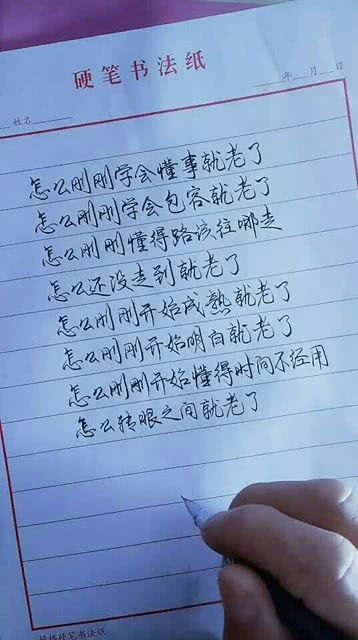 硬笔书法纸
姓名
年 月 日
怎么刚刚学会懂事就老了
怎么刚刚学会包容就老了
怎么刚刚懂得路该往哪走
怎么还没走到就老了
怎么刚刚开始成熟就老了
怎么刚刚开始明白就老了
怎么刚刚开始懂得时间不经用
怎么转眼之间就老了
格硬笔书法纸